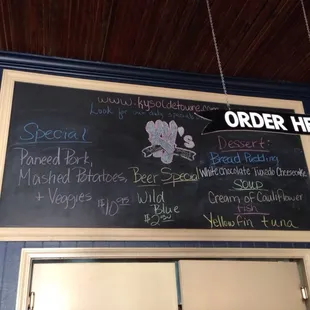 www.kysoldetowne.com
Look for our daily specials
Ky's
ORDER HE
Special
Paneed Pork,
Mashed Potatoes,
+ Veggies
$10.95
Beer Special
Wild
Blue
$2.50
Dessert:
Bread Pudding
White Chocolate Tuxedo Cheesecake
SOUP
Cream of Cauliflower
fish
Yellowfin tuna